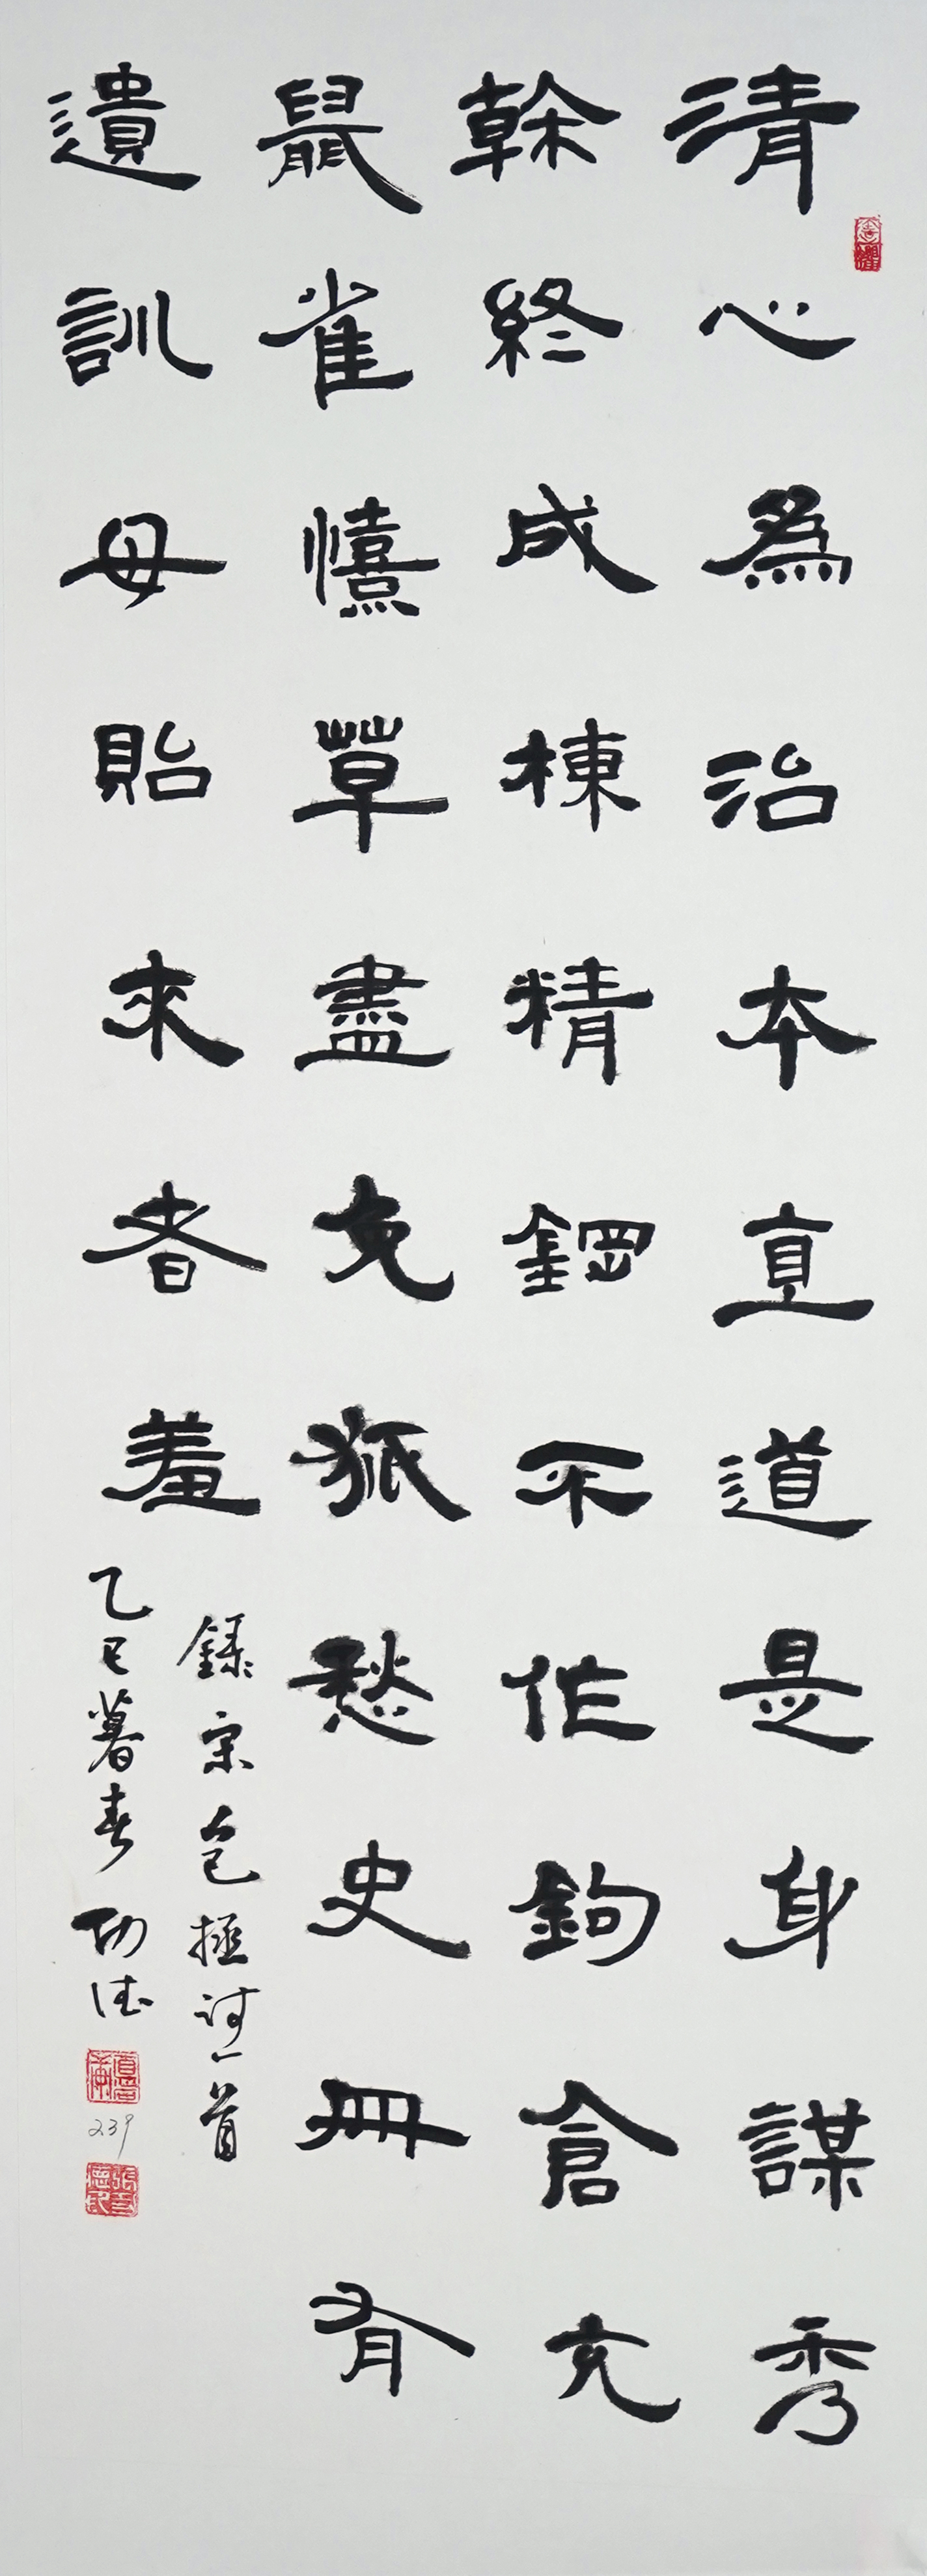 清心為治本直道是身謀秀
幹終成棟精鋼不作鉤倉充
鼠雀憙草盡兔狐愁史冊有
遺訓毋貽來者羞
錄宋包拯詩一首
乙巳暮春 功德
239